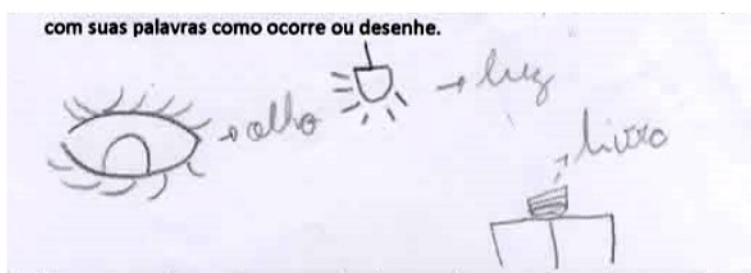 com suas palavras como ocorre ou desenhe.
luz
olho
livro